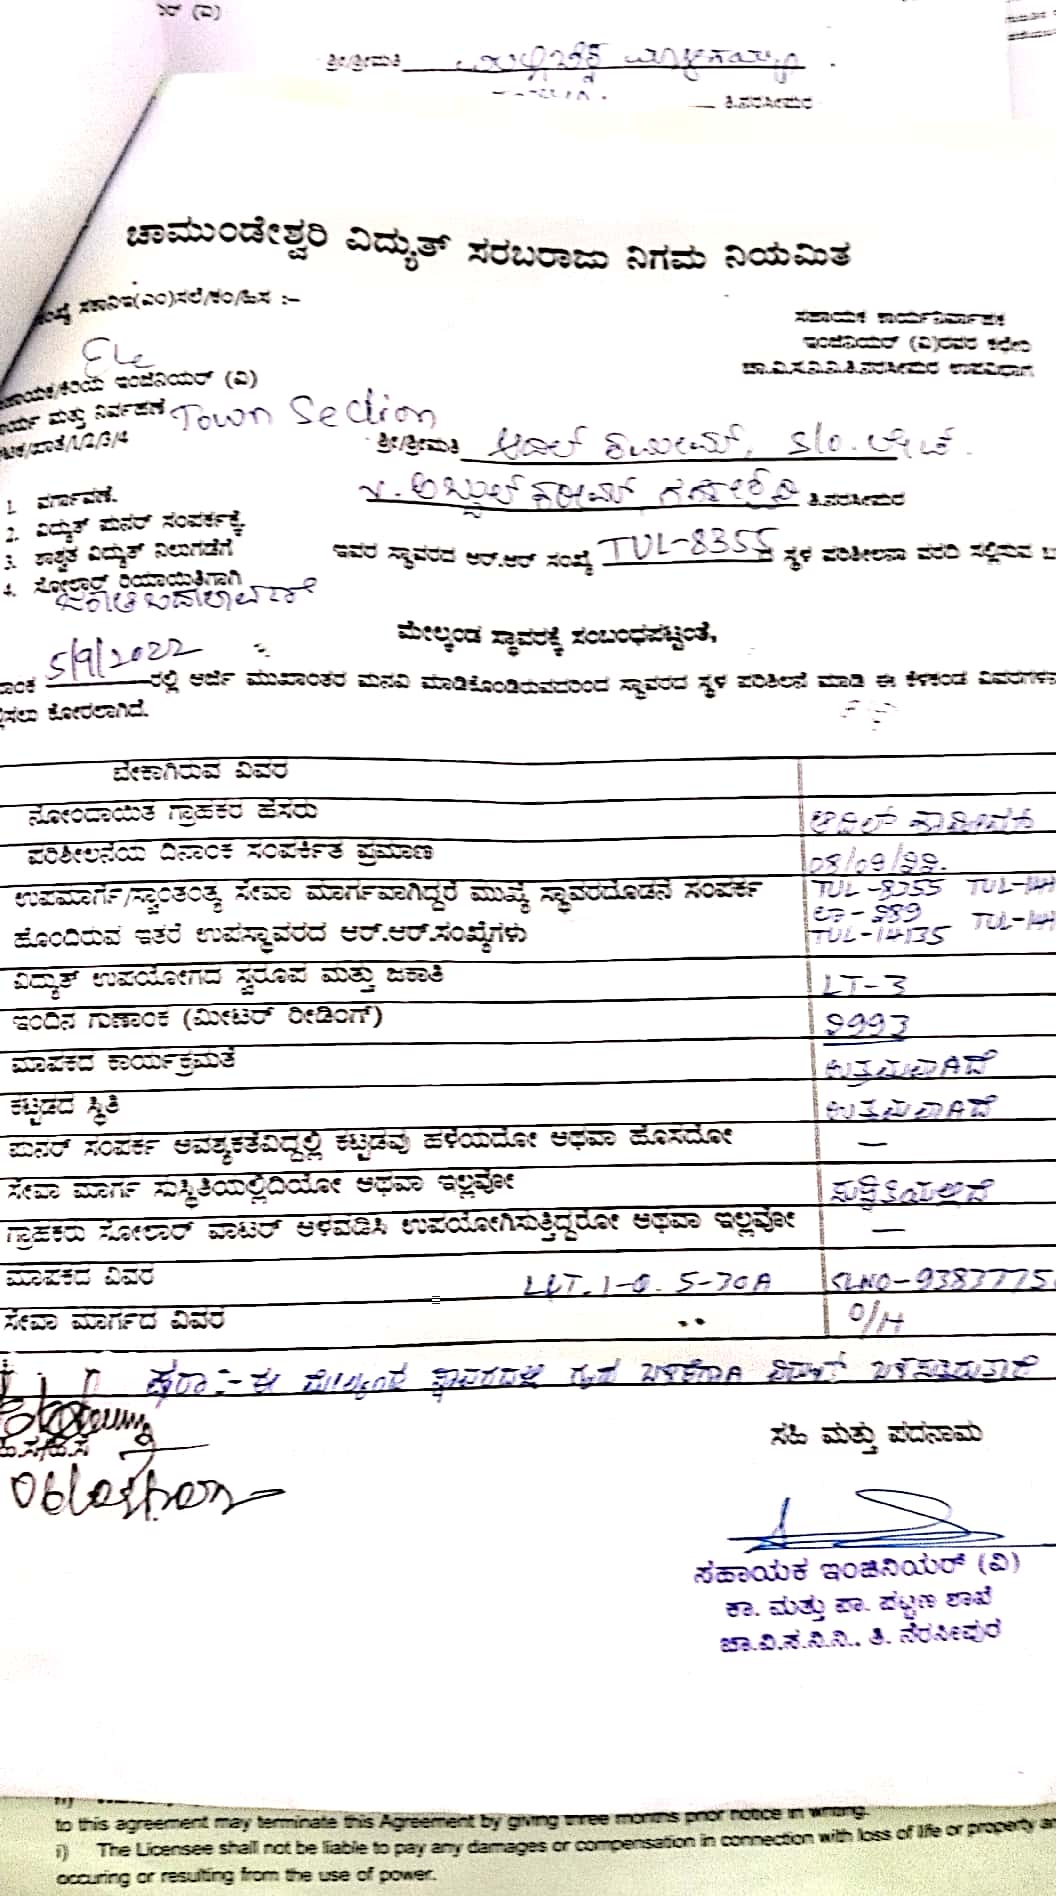 ಎರ್ (ವಿ)
ಶ್ರೀ/ಶ್ರೀಮತಿ
ತಿ.ನರಸೀಪುರ
ಚಾಮುಂಡೇಶ್ವರಿ ವಿದ್ಯುತ್ ಸರಬರಾಜು ನಿಗಮ ನಿಯಮಿತ
ಸಕಾನಿಇ(ಎಂ)ಸಲೆ/ಕಂ/ಹಿಸ :–
ಸಹಾಯಕ ಕಾರ್ಯನಿರ್ವಾಹಕ
ಇಂಜಿನಿಯರ್ (ವಿ)ರವರ ಕಛೇರಿ
ಚಾ.ವಿ.ಸ.ನಿ.ನಿ.ತಿ.ನರಸೀಪುರ ಉಪವಿಭಾಗ
Ele
ಇಂಜಿನಿಯರ್ (ವಿ)
ಮತ್ತು ನಿರ್ವಹಣೆ Town Section
1/2/3/4
ಶ್ರೀ/ಶ್ರೀಮತಿ S/o. ಲೇಟ್.
ವಿ. ಅಬ್ದುಲ್ ತಿ.ನರಸೀಪುರ
1. ವರ್ಗಾವಣೆ.
2. ವಿದ್ಯುತ್ ಪುನರ್ ಸಂಪರ್ಕಕ್ಕೆ
3. ಶಾಶ್ವತ ವಿದ್ಯುತ್ ನಿಲುಗಡೆಗೆ
4. ಸೋಲಾರ್ ರಿಯಾಯಿತಿಗಾಗಿ
ಇವರ ಸ್ಥಾವರದ ಆರ್.ಆರ್ ಸಂಖ್ಯೆ TUL-8355 ಸ್ಥಳ ಪರಿಶೀಲನಾ ವರದಿ ಸಲ್ಲಿಸುವ ಬ
ಜಕಾತಿ ಬದಲಾವಣೆ
ಮೇಲ್ಕಂಡ ಸ್ಥಾವರಕ್ಕೆ ಸಂಬಂಧಪಟ್ಟಂತೆ,
ಾಂಕ 5/9/2022 ರಲ್ಲಿ ಅರ್ಜಿ ಮುಖಾಂತರ ಮನವಿ ಮಾಡಿಕೊಂಡಿರುವದರಿಂದ ಸ್ಥಾವರದ ಸ್ಥಳ ಪರಿಶೀಲನೆ ಮಾಡಿ ಈ ಕೆಳಕಂಡ ವಿವರಗಳನ
ಸಲು ಕೋರಲಾಗಿದೆ.
ಬೇಕಾಗಿರುವ ವಿವರ
ನೋಂದಾಯಿತ ಗ್ರಾಹಕರ ಹೆಸರು ಆದಿಲ್
ಪರಿಶೀಲನೆಯ ದಿನಾಂಕ ಸಂಪರ್ಕಿತ ಪ್ರಮಾಣ 08/09/22.
ಉಪಮಾರ್ಗ/ಸ್ವಾಂತಂತ್ಯ ಸೇವಾ ಮಾರ್ಗವಾಗಿದ್ದರೆ ಮುಖ್ಯ ಸ್ಥಾವರದೊಡನೆ ಸಂಪರ್ಕ TUL-8355 TUL-14
ಹೊಂದಿರುವ ಇತರೆ ಉಪಸ್ಥಾವರದ ಆರ್.ಆರ್.ಸಂಖ್ಯೆಗಳು 989 TUL-14
TUL-14135
ವಿದ್ಯುತ್ ಉಪಯೋಗದ ಸ್ವರೂಪ ಮತ್ತು ಜಕಾತಿ LT-3
ಇಂದಿನ ಗುಣಾಂಕ (ಮೀಟರ್ ರೀಡಿಂಗ್) 9993
ಮಾಪಕದ ಕಾರ್ಯಕ್ರಮತೆ ಉತ್ತಮವಾಗಿದೆ
ಕಟ್ಟಡದ ಸ್ಥಿತಿ ಉತ್ತಮವಾಗಿದೆ
ಪುನರ್ ಸಂಪರ್ಕ ಆವಶ್ಯಕತೆವಿದ್ದಲ್ಲಿ ಕಟ್ಟಡವು ಹಳೆಯದೋ ಅಥವಾ ಹೊಸದೋ —
ಸೇವಾ ಮಾರ್ಗ ಸುಸ್ಥಿತಿಯಲ್ಲಿದಿಯೋ ಅಥವಾ ಇಲ್ಲವೋ ಸುಸ್ಥಿತಿಯಲ್ಲಿದೆ
ಗ್ರಾಹಕರು ಸೋಲಾರ್ ವಾಟರ್ ಅಳವಡಿಸಿ ಉಪಯೋಗಿಸುತ್ತಿದ್ದರೋ ಅಥವಾ ಇಲ್ಲವೋ —
ಮಾಪಕದ ವಿವರ L&T. 1-Q. 5-30A SLNO-9383775
ಸೇವಾ ಮಾರ್ಗದ ವಿವರ O/H
ಷರಾ :- ಈ ಮೇಲ್ಕಂಡ ಸ್ಥಾವರದಲ್ಲಿ ಗೃಹ ಬಳಕೆಗಾಗಿ ವಿದ್ಯುತ್ ಬಳಸುತ್ತಿರುತ್ತಾರೆ
ಸಹಿ ಮತ್ತು ಪದನಾಮ
ಸಹಾಯಕ ಇಂಜಿನಿಯರ್ (ವಿ)
ಕಾ. ಮತ್ತು ಪಾ. ಪಟ್ಟಣ ಶಾಖೆ
ಚಾ.ವಿ.ಸ.ನಿ.ನಿ., ತಿ. ನರಸೀಪುರ
to this agreement may terminate this Agreement by giving three months prior notice in writing.
i) The Licensee shall not be liable to pay any damages or compensation in connection with loss of life or property a
occuring or resulting from the use of power.